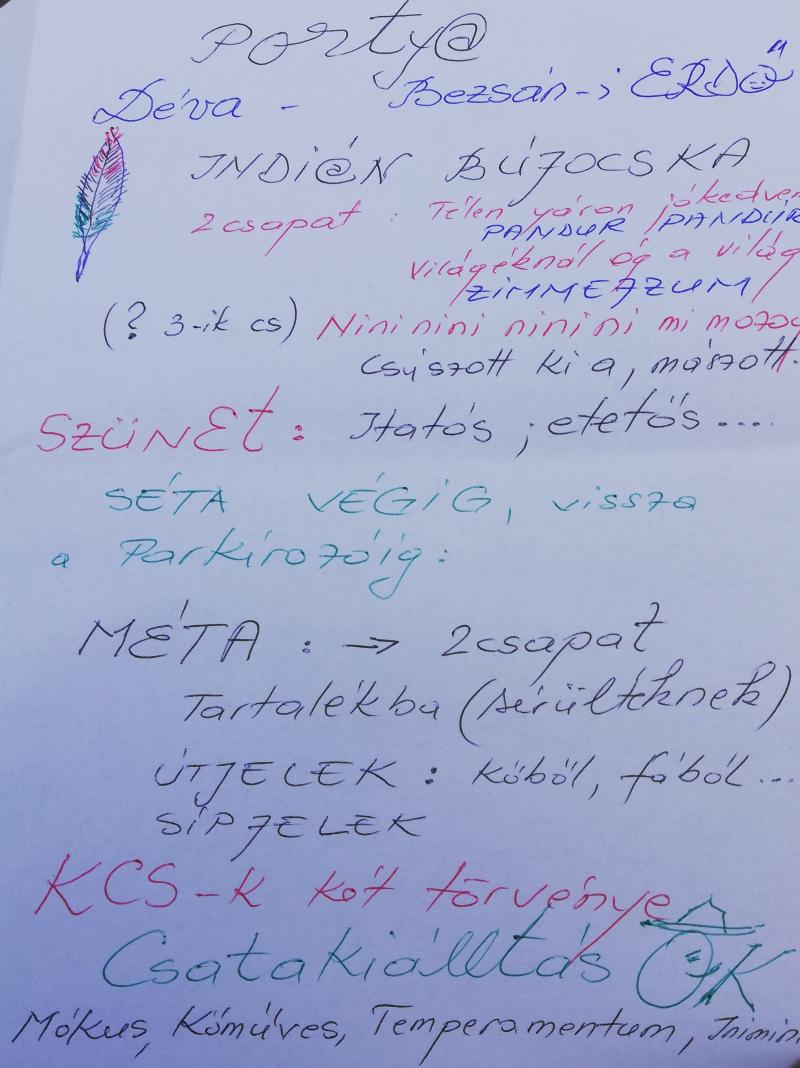 Porty@
Déva - Bezsán-i ERDŐ
INDI@N BÚJOCSKA
2 csapat : Télen nyáron jókedven
PANDUR /PANDÚR
Világéknál ég a világ
/ZIMMEJZUM/
(? 3-ik cs) Nini nini ninini mi mozog
Csúszott ki a, mászott.
SZÜNEt : Itatós ; etetős ....
SÉTA VÉGIG, vissza
a Parkírozóig :
MÉTA : → 2 csapat
Tartalékba (sérülteknek)
ÚTJELEK : kőből, fából ...
SÍPJELEK
KCS-k két törvénye
Csatakiálltás ŐK
Mókus, Kőműves, Temperamentum,